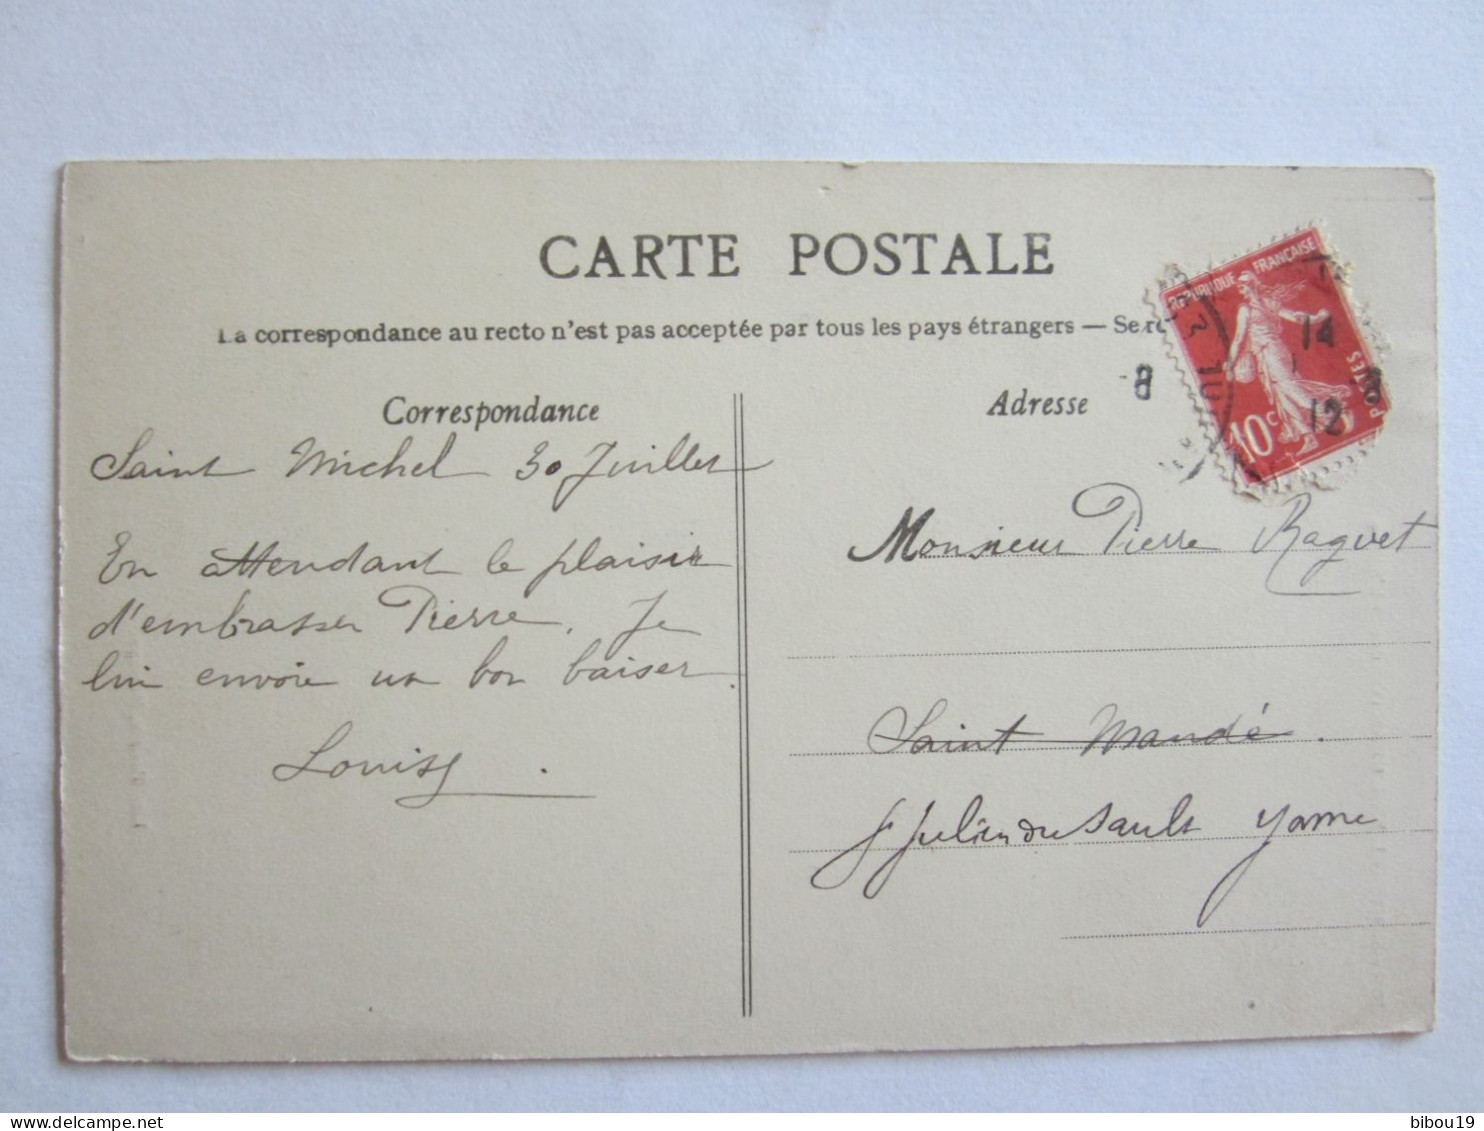 CARTE POSTALE
La correspondance au recto n'est pas acceptée par tous les pays étrangers — Se
Correspondance
Saint Michel 30 Juillet
En attendant le plaisir
d'embrasser Pierre. Je
lui envoie un bon baiser.
Louise.
REPUBLIQUE FRANÇAISE
POSTES
10c
14
8
12
8
Adresse
Monsieur Pierre Raguet
Saint Mandé.
St Julien du Sault Yonne
bibou19